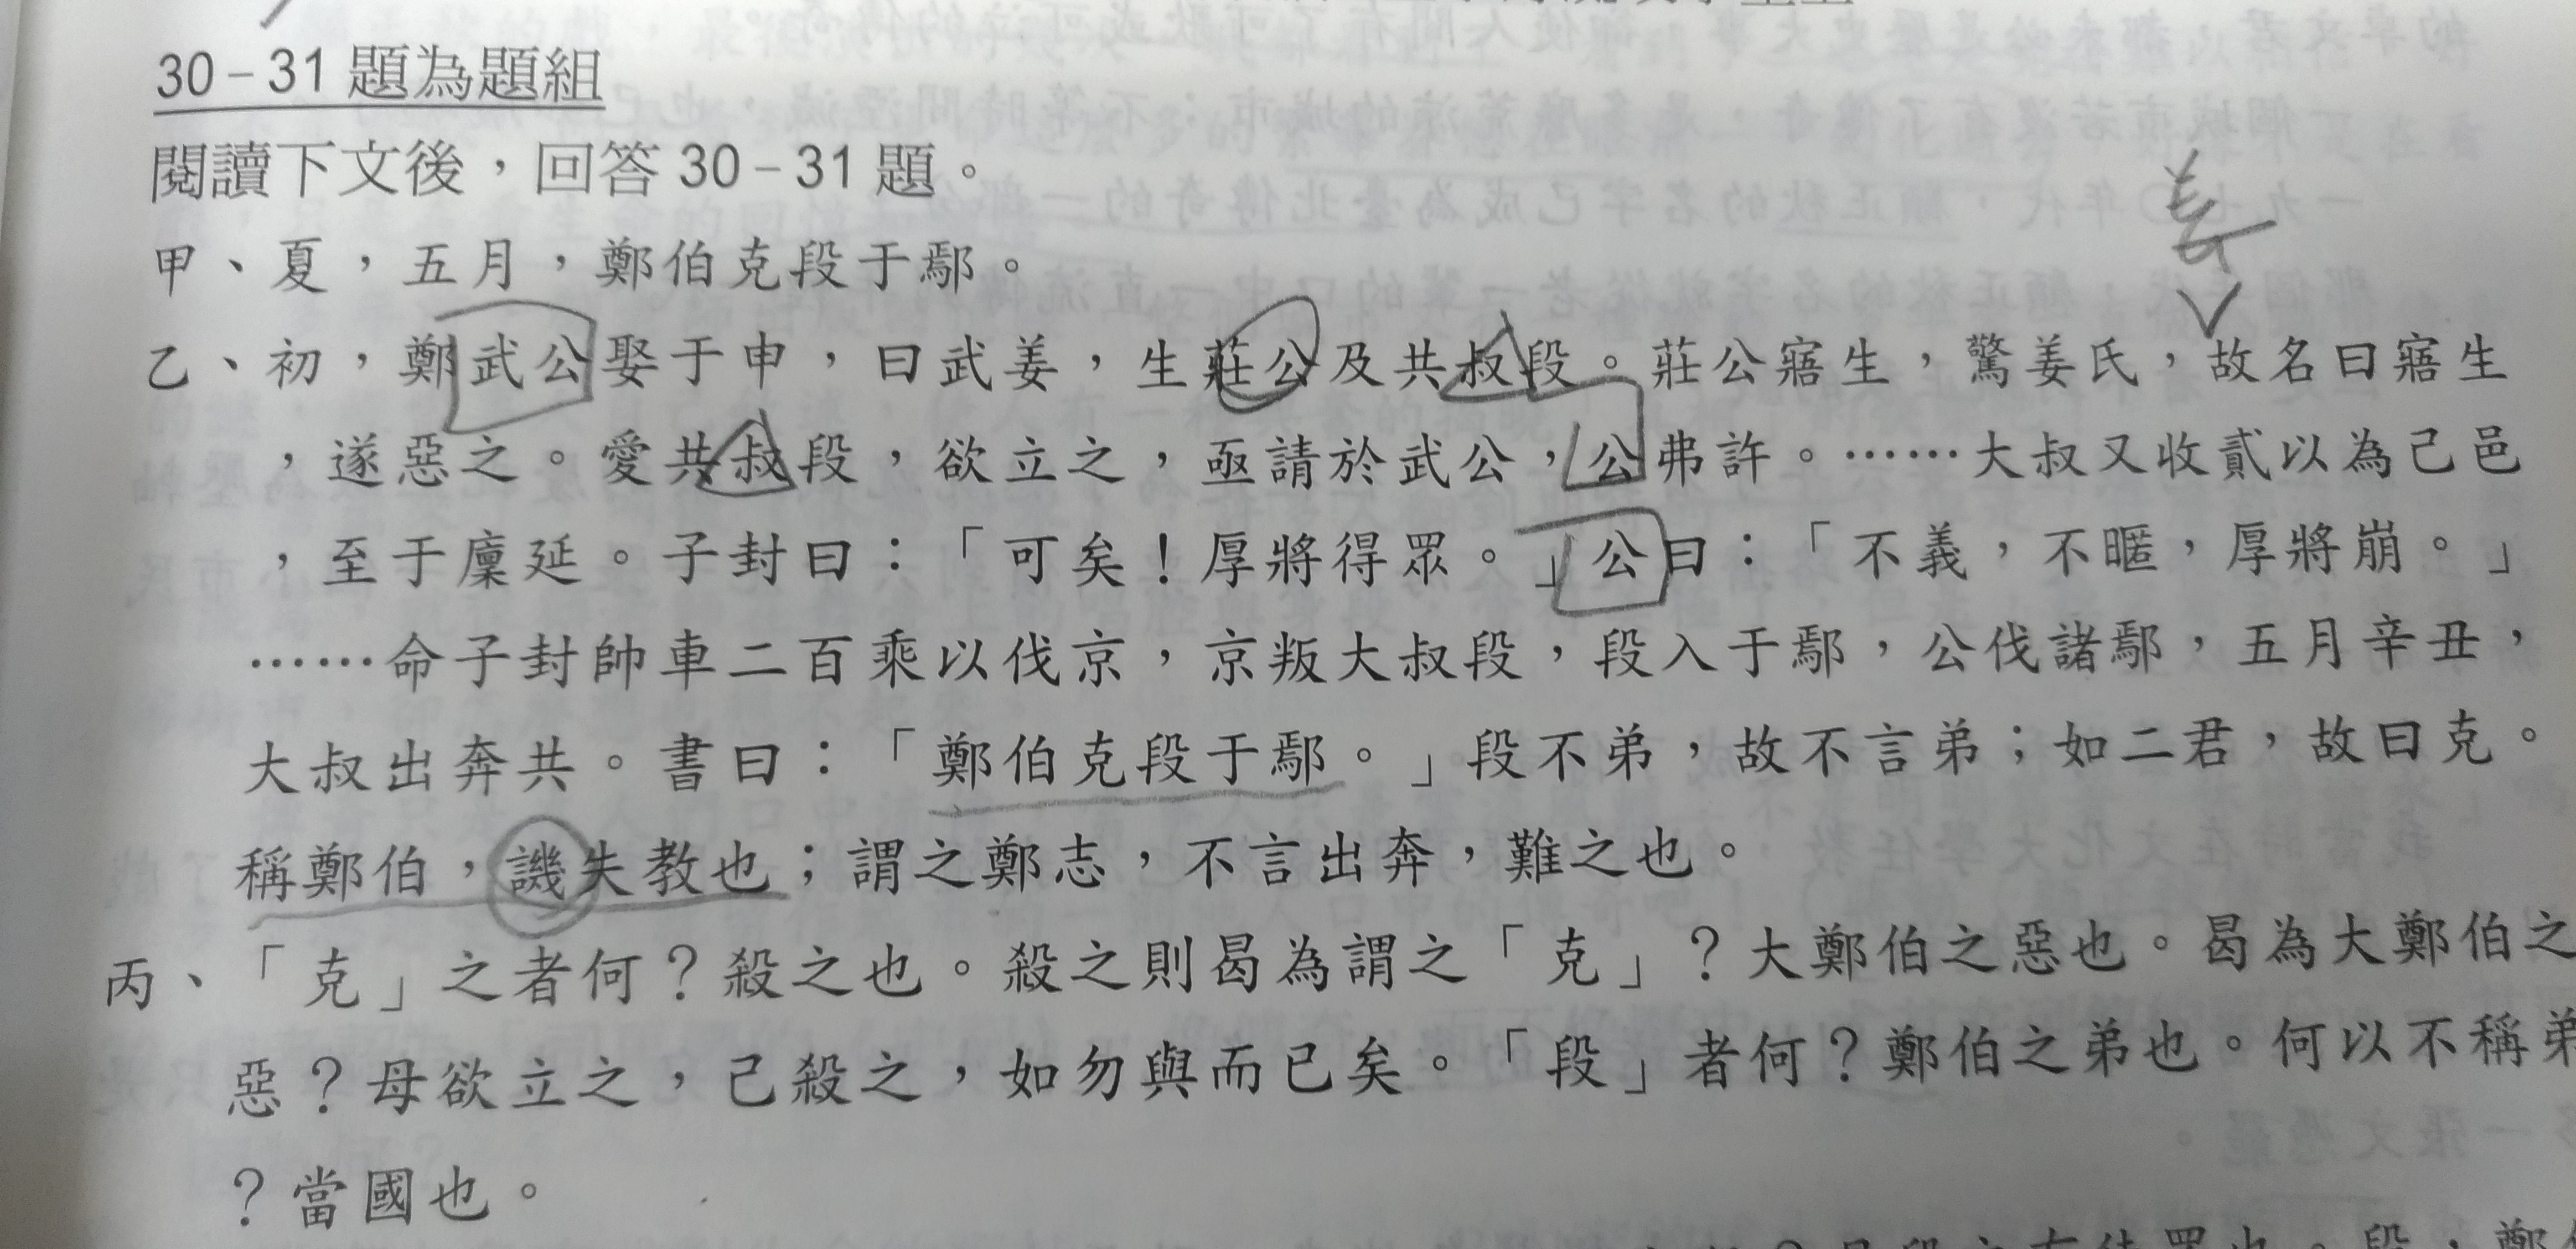 30－31 題為題組
閱讀下文後，回答 30－31 題。
甲、夏，五月，鄭伯克段于鄢。
姜
乙、初，鄭武公娶于申，曰武姜，生莊公及共叔段。莊公寤生，驚姜氏，故名曰寤生
，遂惡之。愛共叔段，欲立之，亟請於武公，公弗許。……大叔又收貳以為己邑
，至于廩延。子封曰：「可矣！厚將得眾。」公曰：「不義，不暱，厚將崩。」
……命子封帥車二百乘以伐京，京叛大叔段，段入于鄢，公伐諸鄢，五月辛丑，
大叔出奔共。書曰：「鄭伯克段于鄢。」段不弟，故不言弟；如二君，故曰克。
稱鄭伯，譏失教也；謂之鄭志，不言出奔，難之也。
丙、「克」之者何？殺之也。殺之則曷為謂之「克」？大鄭伯之惡也。曷為大鄭伯之
惡？母欲立之，己殺之，如勿與而已矣。「段」者何？鄭伯之弟也。何以不稱弟
？當國也。